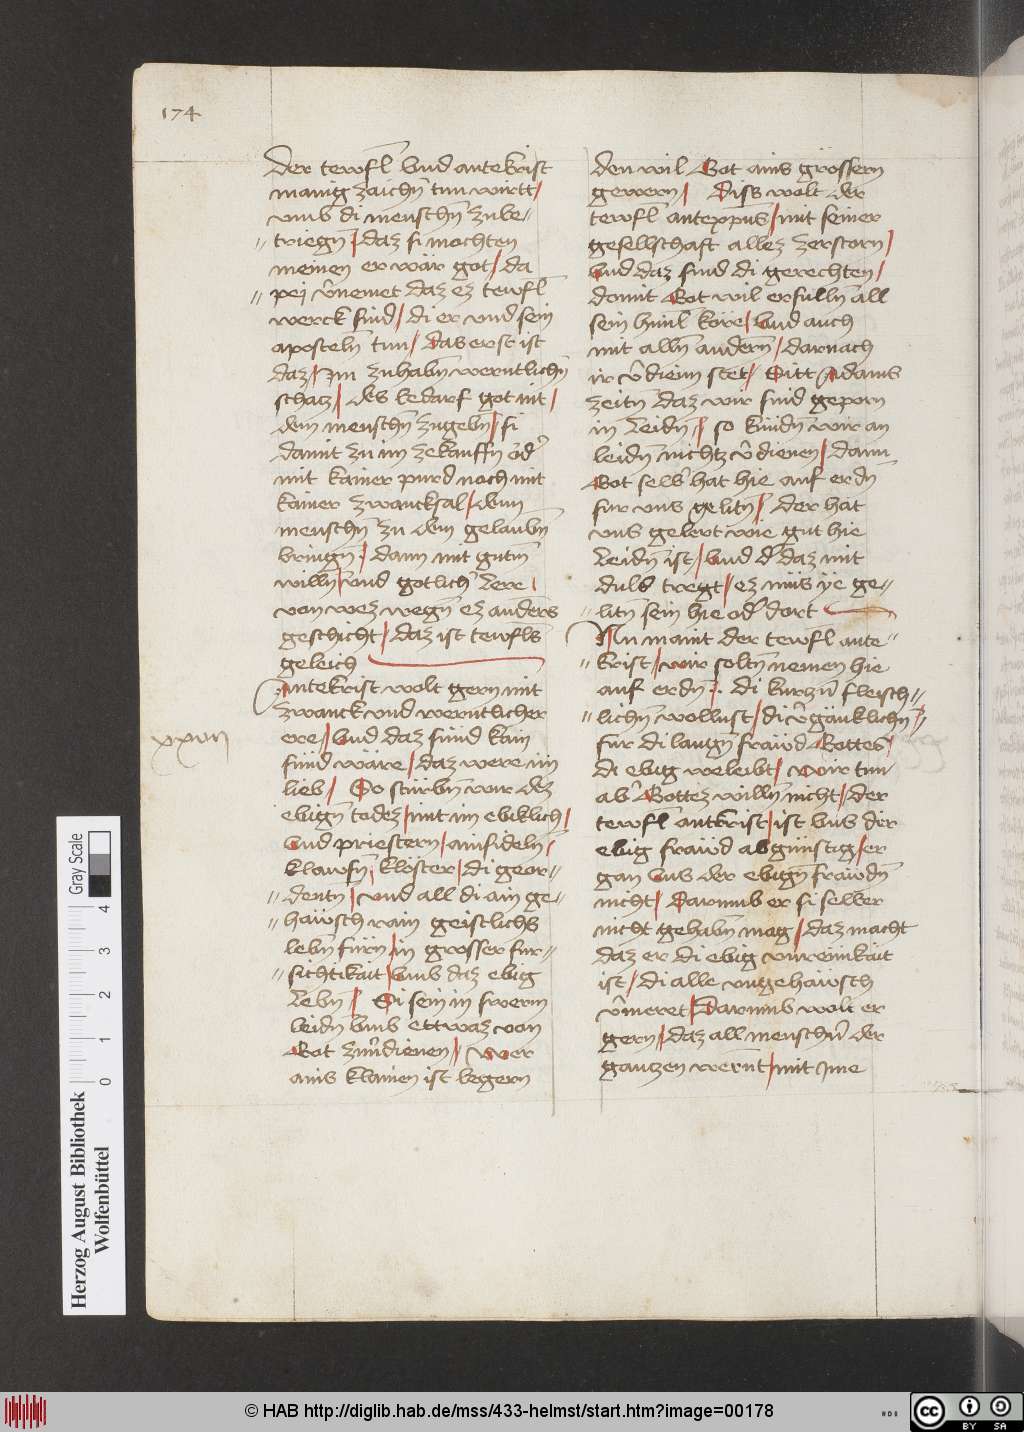 174
der tewfl̄ Vnd antekrist
manig zaichn̄ tun wirtt/
vmb di menschn̄ zube-
triegn̄ / daz si mochten
meinen er wär got / da
pej v̄nemet daz ez tewfl̄
werck sind / di er vnd sein
aposteln̄ tun / Das erst ist
daz / Im zuhabn̄ werntlichn̄
schatz / des bedarf got nit /
dem menschn̄ zugebn̄ / si
damit zu im zekauffn̄ od̄
mit kainer purd noch mit
kainer zwancksal / dem
menschn̄ zu dem gelaubn̄
bringn̄ / dann mit gutm̄
willn̄ / vnd gotlich̄ Lere /
von wez wegn̄ ez anders
geschicht / daz ist tewfls̄
geleich
Antekrist wolt gern mit
zwanck vnd werntlicher
ere / Vnd daz sünd kain
sünd wäre / daz were im
lieb / So stürbn̄ wir dez
ebign̄ todez / mit im ebiklich /
Vnd priestern / ainsideln̄ /
klawsn̄ / klöster / di geor-
dentn̄ / vnd all di ain ge-
häwsch rain geistlichs
lebn̄ fürn̄ / in grosser fur-
sichtikait / Vmb daz ebig
Lebn̄ / Si sein in swerm
leidn̄ Vmb ettwaz von
Got zuu̅dienen / wer
ains klainen ist begern
xxvii
den wil Got ains grossern
gewern / Diss wolt der
tewfl̄ antexp̄us / mit seiner
gesellschaft allez zerstorn /
Vnd daz sind di gerechten /
domit Got wil erfulln̄ all
sein himl̄ köre / Vnd auch
mit alln̄ andern̄ / darnach
ir v̄dienn stet / Sitt Adams
zeitn̄ daz wir sind geporn
in Leidn̄ / so kündn̄ wir an
leidn̄ nichtz v̄dienen / dann
Got selb̄ hat hie auf erdn̄
fur vns gelitn̄ / der hat
vns gelert wie gut hie
Leidn̄ ist / Vnd d̄ daz mit
duld tregt / ez müs ÿe ge-
litn̄ sein hie od̄ dort
Nu maint der tewfl̄ ante-
krist / wir soltn̄ nemen hie
auf erdn̄ / di kurzn̄ fleisch-
lichn̄ wollust / di v̄gäncklichn̄ /
fur di langn̄ fräwd Gottes /
di ebig weleibt / wir tun
ab̄ Gottez willn̄ nicht / der
tewfl̄ antkrist / ist vns der
ebig fräwd abgünstig / er
gan vns der ebign̄ fräwdn̄
nicht / Darumb er si selber
nicht gehabn̄ mag / daz macht
daz er di ebig vnreinkait
ist / di alle vngehäwsch
v̄meret / Darumb wolt er
gern / daz all menschn̄ der
gantzen wernt̄ / mit Ime
Herzog August Bibliothek
Wolfenbüttel
Gray Scale
0 1 2 3 4
© HAB http://diglib.hab.de/mss/433-helmst/start.htm?image=00178
cc BY SA